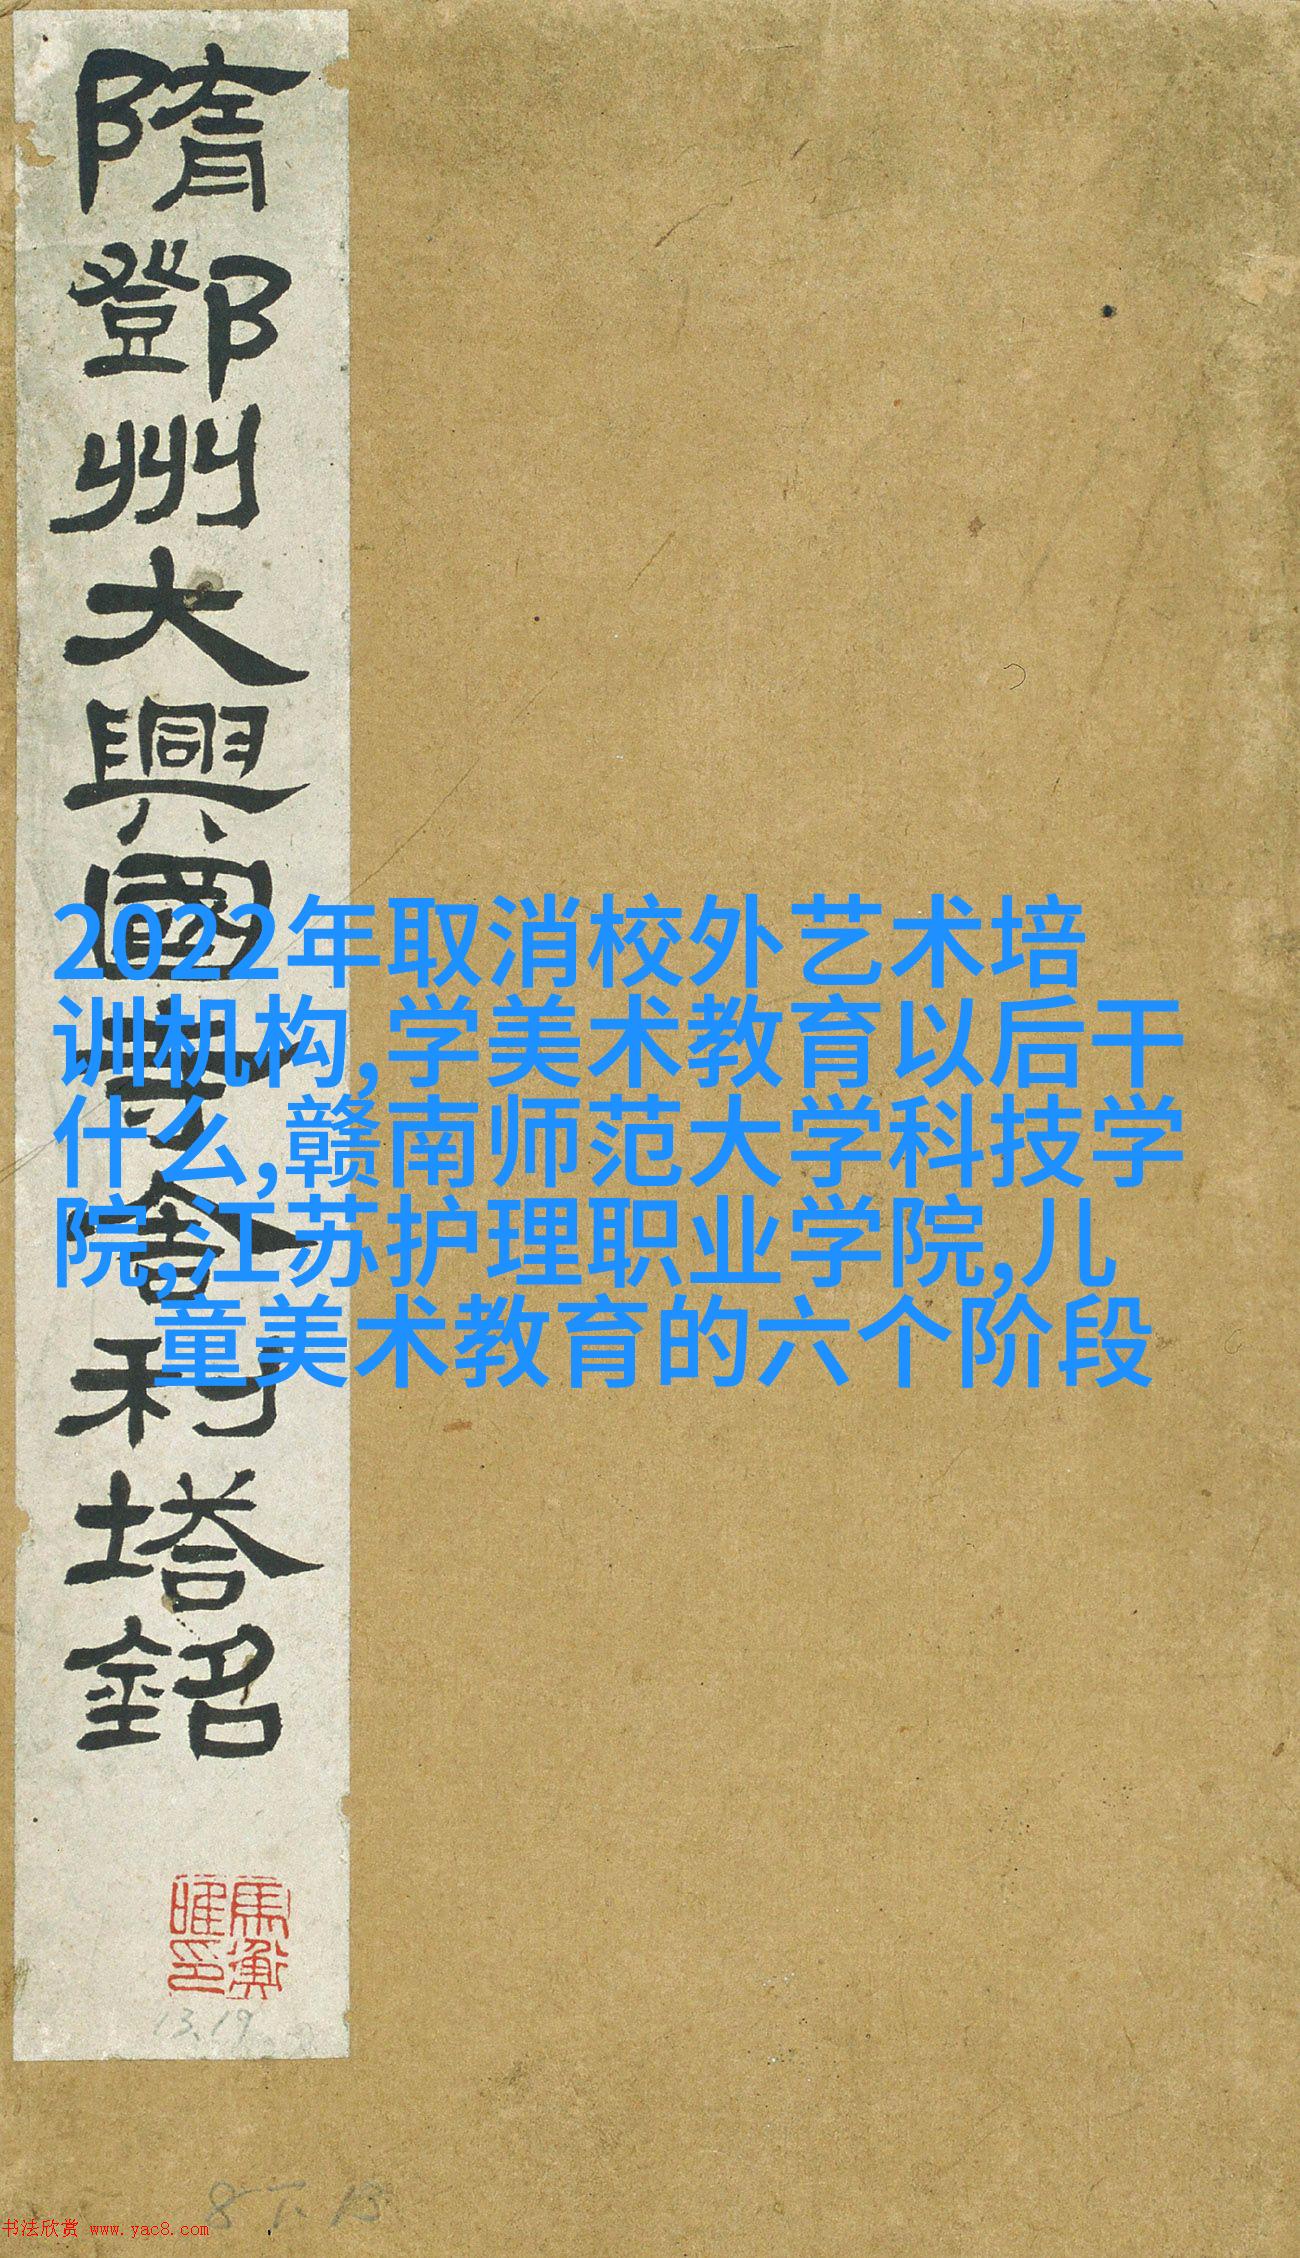 隋鄧州大興國寺舍利塔銘
2022年取消校外艺术培
训机构,学美术教育以后干
什么,赣南师范大学科技学
院,江苏护理职业学院,儿
童美术教育的六个阶段
馬衡
唯印
13.19
8下13
书法欣赏 www.yac8.com